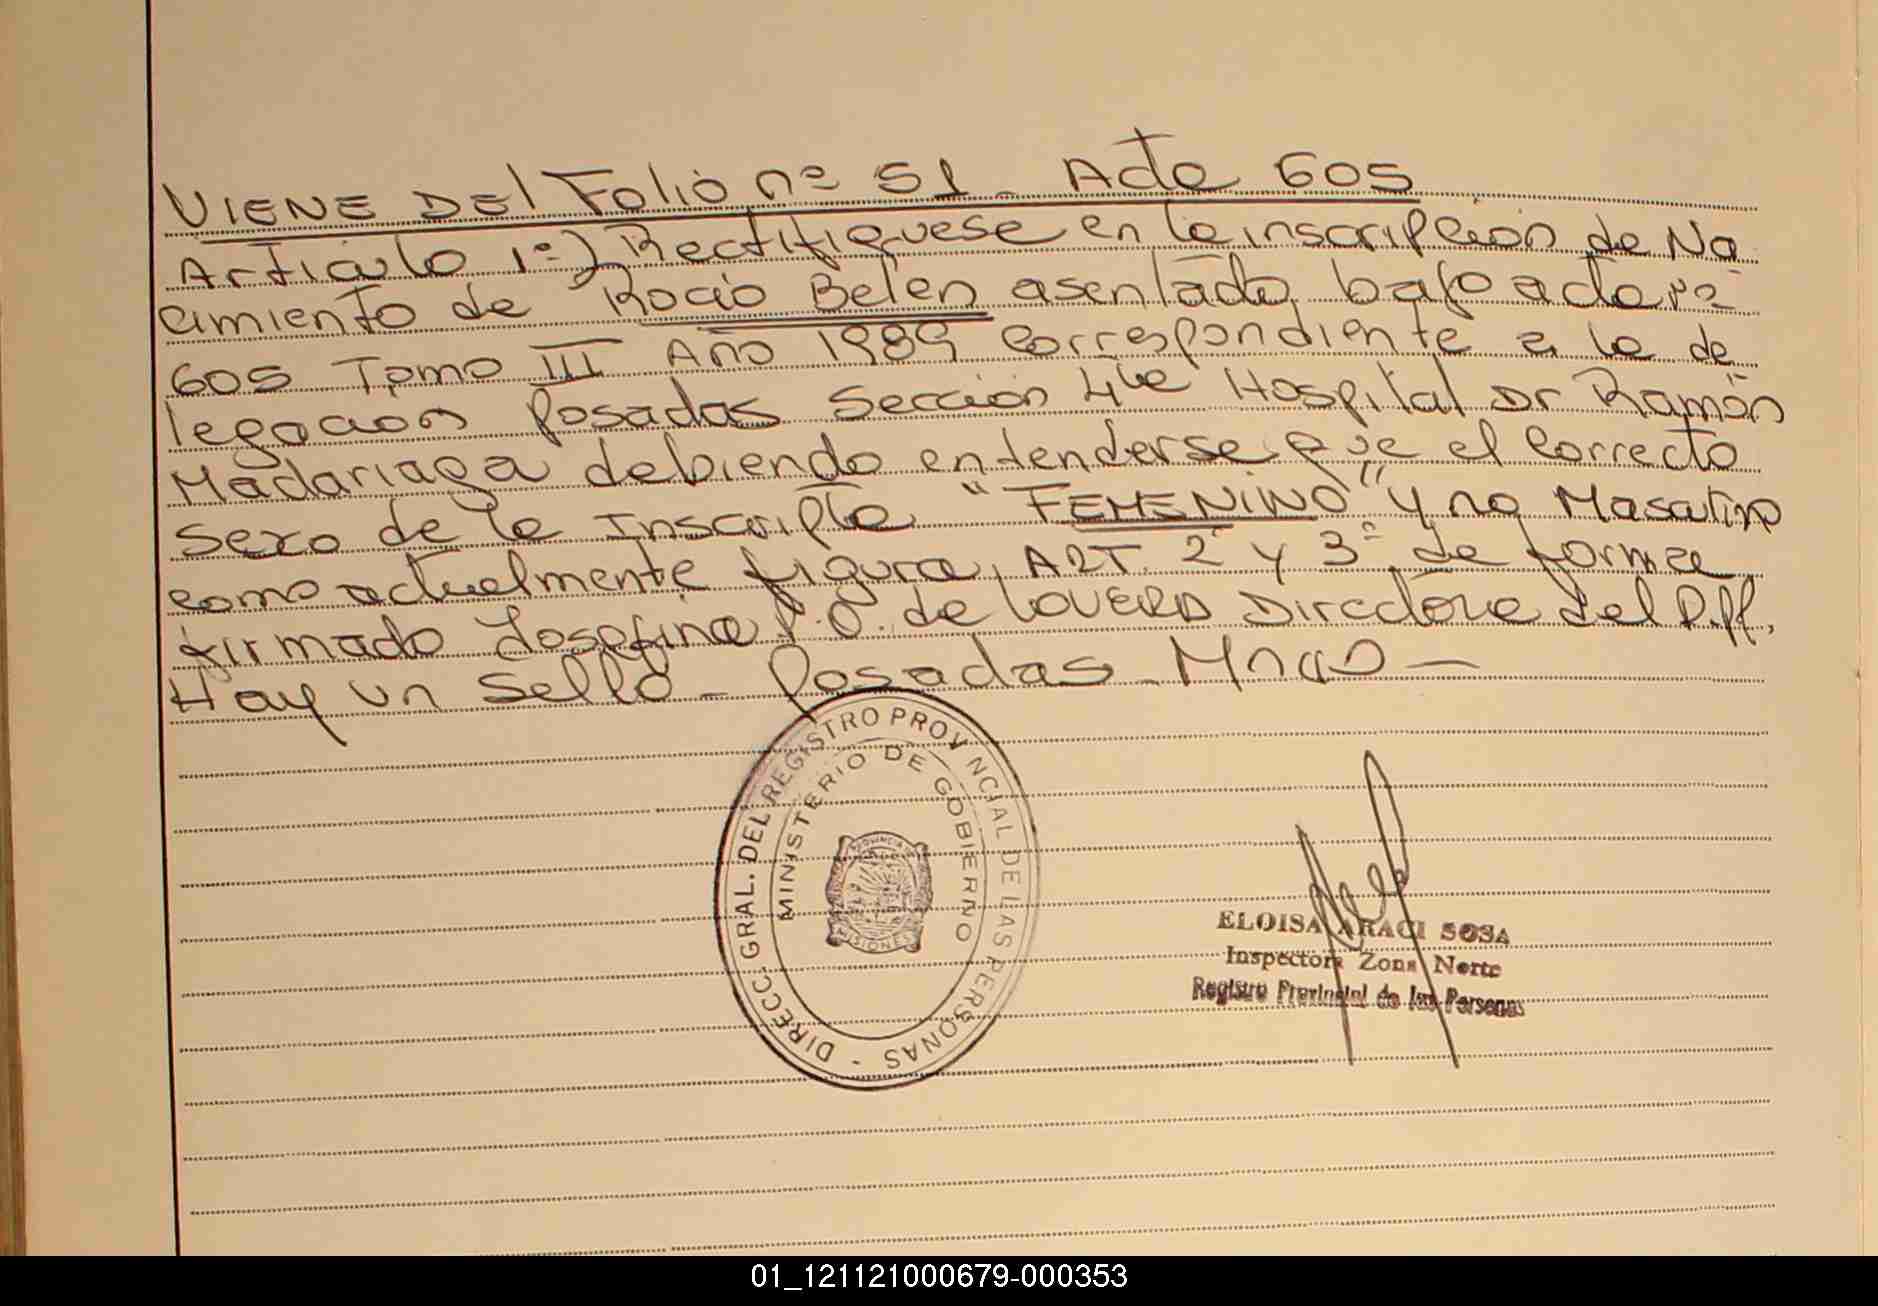 VIENE DEL Folio nº 51 - Acta 605
Articulo 1º) Rectifiquese en la inscripcion de Na
cimiento de Rocio Belén asentada bajo acta nº
605 Tomo III Año 1989 correspondiente a la de
legacion Posadas Sección 4ta Hospital Dr Ramón
Madariaga debiendo entenderse que el correcto
sexo de la Inscripta "FEMENINO" y no Masculino
como actualmente figura, ART. 2º y 3º de forma
firmado Josefina P.O. de LOVERA Directora del R.P.P.
Hay un Sello - Posadas - Mnes -
DIRECC. GRAL. DEL REGISTRO PROVINCIAL DE LAS PERSONAS -
MINISTERIO DE GOBIERNO
PROVINCIA DE
MISIONES
ELOISA ARACI SOSA
Inspectora Zona Norte
Registro Provincial de las Personas
01_121121000679-000353